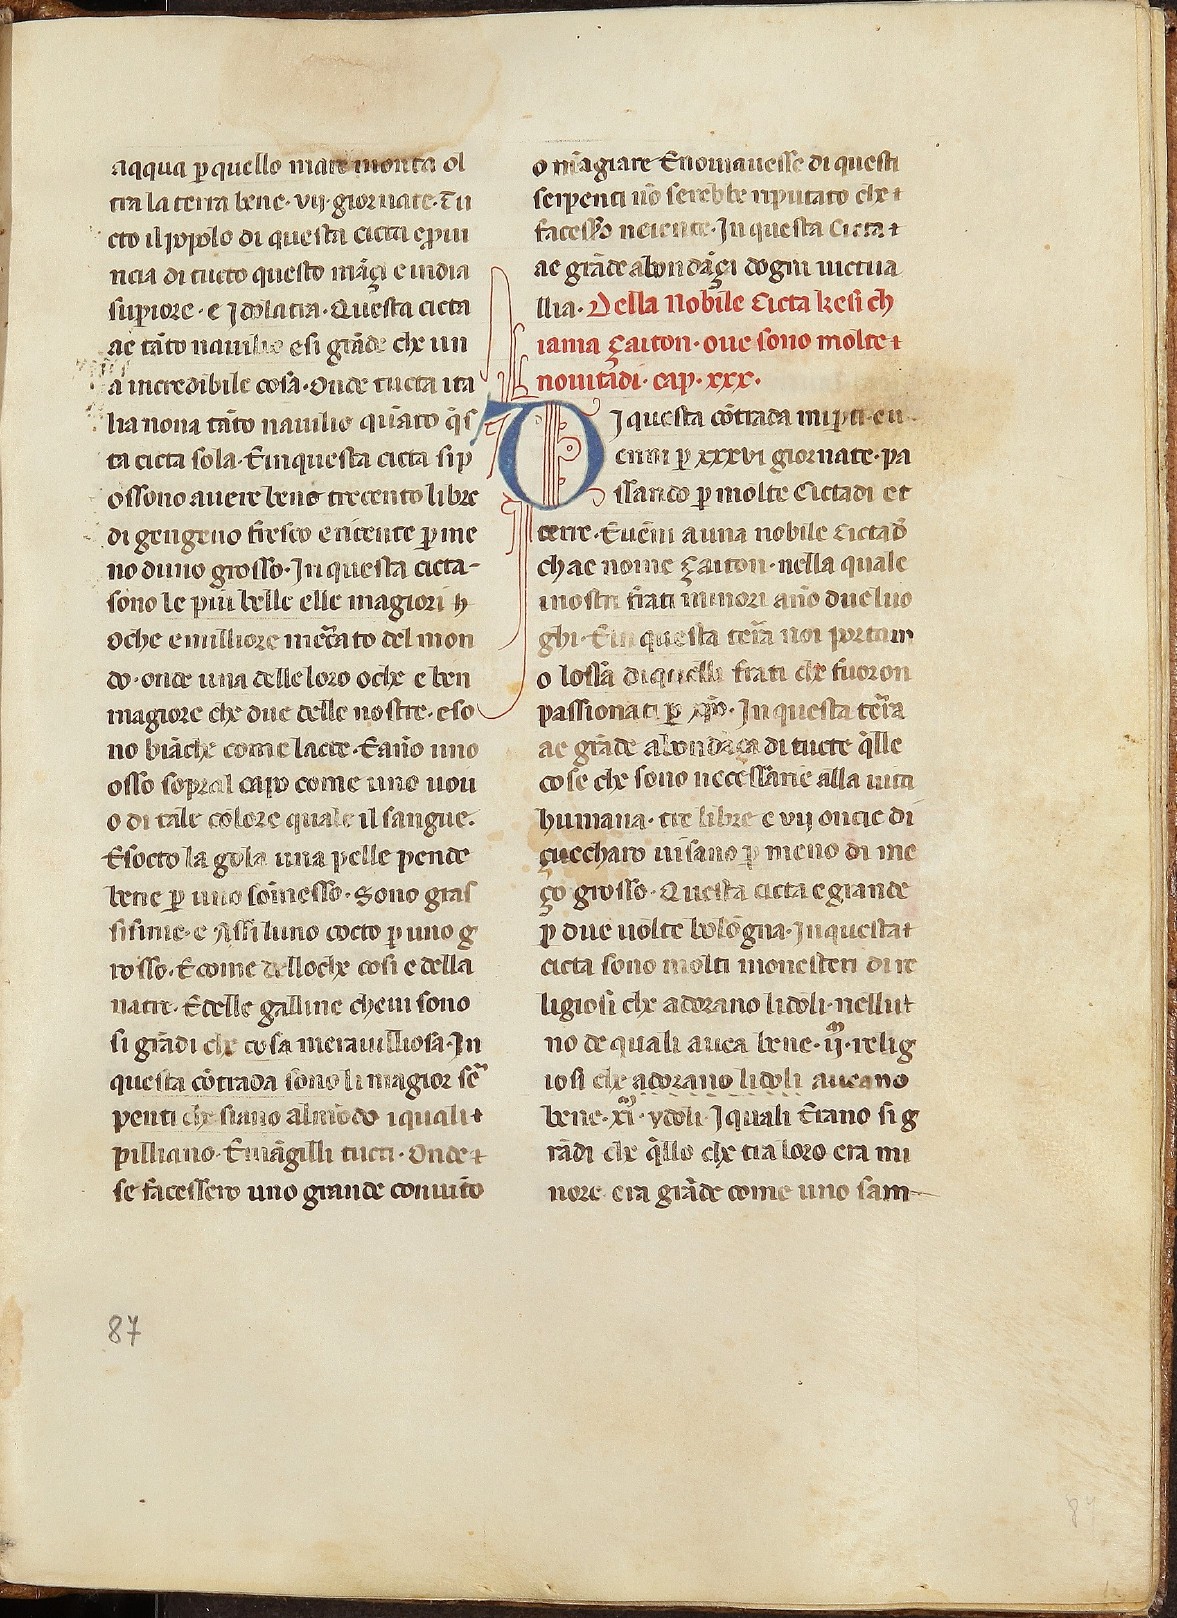 aqqua p̱ quello mare monta ol
tra la terra bene· vij· giornate· E tu
cto il popolo di questa cicta e p̱uī
ncia di tucto questo māçi e india
supiore· e Jdolatra· Questa cicta
ae tāto nauilio e si grāde che un
a incredibile cosa· Onde tucta ita
lia nona tāto nauilio quāto q̄s
ta cicta sola· E inquesta cicta si p
ossono auere bene trecento libre
di gengeuo fresco e ricente p̱ me
no duno grosso· In questa cicta-
sono le piu belle elle magiori
oche e milliore meržato del mon
do· onde una delle loro oche e ben
magiore che due delle nostre· e so
no biāche come lacte· E āno uno
osso sopral capo come uno uou
o di tale colore quale il sangue·
E socto la gola una pelle pende
bene p̱ uno somesso· Sono gras
sisime· e Assi luno cocto p̱ uno g
rosso· E come delloche cosi e della
natre· E delle galline cheui sono
si grādi che cosa merauilliosa· In
questa cōtrada sono li magior sē
penti che siano al mōdo i quali
pilliano· E māgilli tucti· Onde
se facessero uno grande conuito
o māgiare E nonnauesse di questi
serpenti nō serebbe riputato che
facesso neiente· In questa Cicta
ae grāde abondāçi dogni uictua
llia· Della Nobile Cicta ke si ch
iama çaiton· oue sono molte
nouitadi· cap· xxx·
DJ questa cōtrada mi p̱ti· eu
enni p̱ xxxvi giornate· pa
ssando p̱ molte Cictadi et
terre· E uēni a una nobile Cictad
ch ae nome çaiton· nella quale
i nostri frati minori āno due luo
ghi· E in questa terra noi portam
o lossa di quelli frati che fuoron
passionati p̱ xp̄o· In questa terra
ae grāde abondāça di tucte q̄lle
cose che sono necessarie alla uita
humana· tre libre e vij oncie di
çuccharo ui sano p̱ meno di me
ço grosso· Questa cicta e grande
p̱ due uolte bologna· In questa
cicta sono molti monesteri di re
ligiosi che adorano lidoli· nellu
no de quali auea bene· ij·ᵐ relig
iosi che adorano lidoli aueano
bene· xi·ᵐ ydoli· J quali Erano si g
rādi che q̄llo che tra loro era mi
nore era grāde come uno sam
87
87